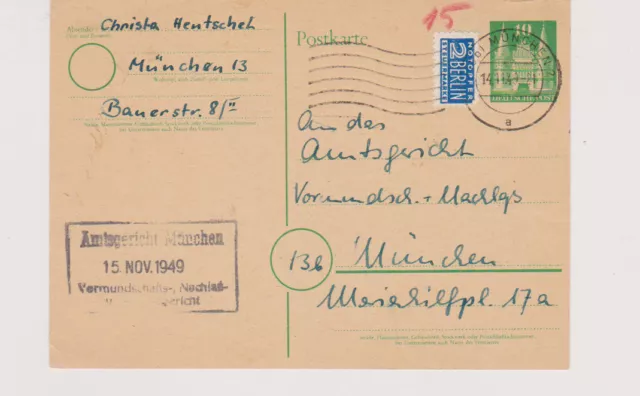 Absender:
Christa Hentschel
München 13
Bauerstr. 8/II
Postkarte
15
NOTOPFER
2 BERLIN
STEUERMARKE
10
MÜNCHEN 2
a
DEUTSCHE POST
An das
Amtsgericht
Vormundsch. + Nachlgs
13b
München
Mariahilfpl. 17a
Amtsgericht München
15. NOV. 1949
Vormundschafts-, Nachlaß-
gericht